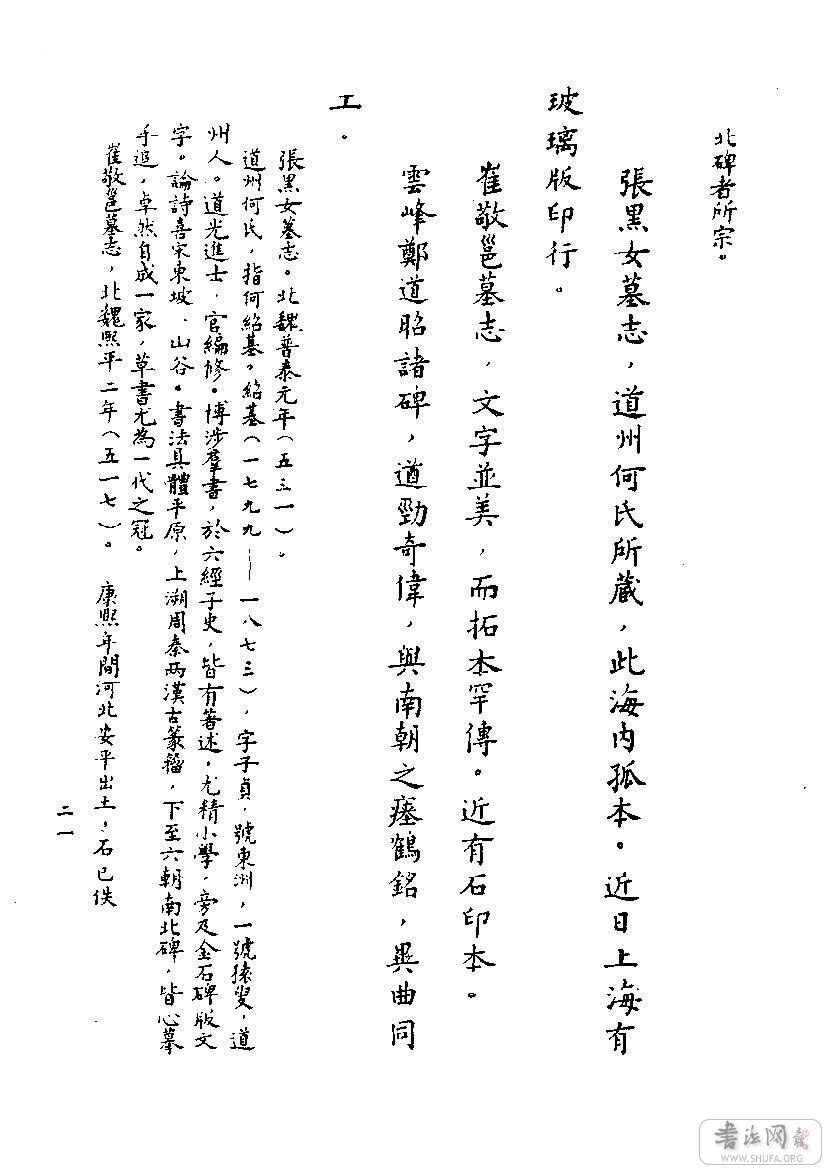 北碑者所宗。
張黑女墓志，道州何氏所藏，此海内孤本。近日上海有
玻璃版印行。
崔敬邕墓志，文字並美，而拓本罕傳。近有石印本。
雲峰鄭道昭諸碑，遒勁奇偉，與南朝之瘗鶴銘，異曲同
工．
張黑女墓志。北魏普泰元年（五三一）。
道州何氏，指何紹基。紹基（一七九九——一八七三），字子貞，號東洲，一號猿叟，道
州人。道光進士，官編修。博涉羣書，於六經子史，皆有著述。尤精小學，旁及金石碑版文
字。論詩喜宋東坡、山谷。書法具體平原，上溯周秦两漢古篆籀，下至六朝南北碑，皆心摹
手追，卓然自成一家，草書尤為一代之冠。
崔敬邕墓志，北魏熙平二年（五一七）。　康熙年間河北安平出土，石已佚
二一
書法网
WWW.SHUFA.ORG